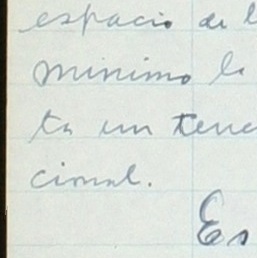 espacio de l
minimo la
ta un tene
cional.
Es